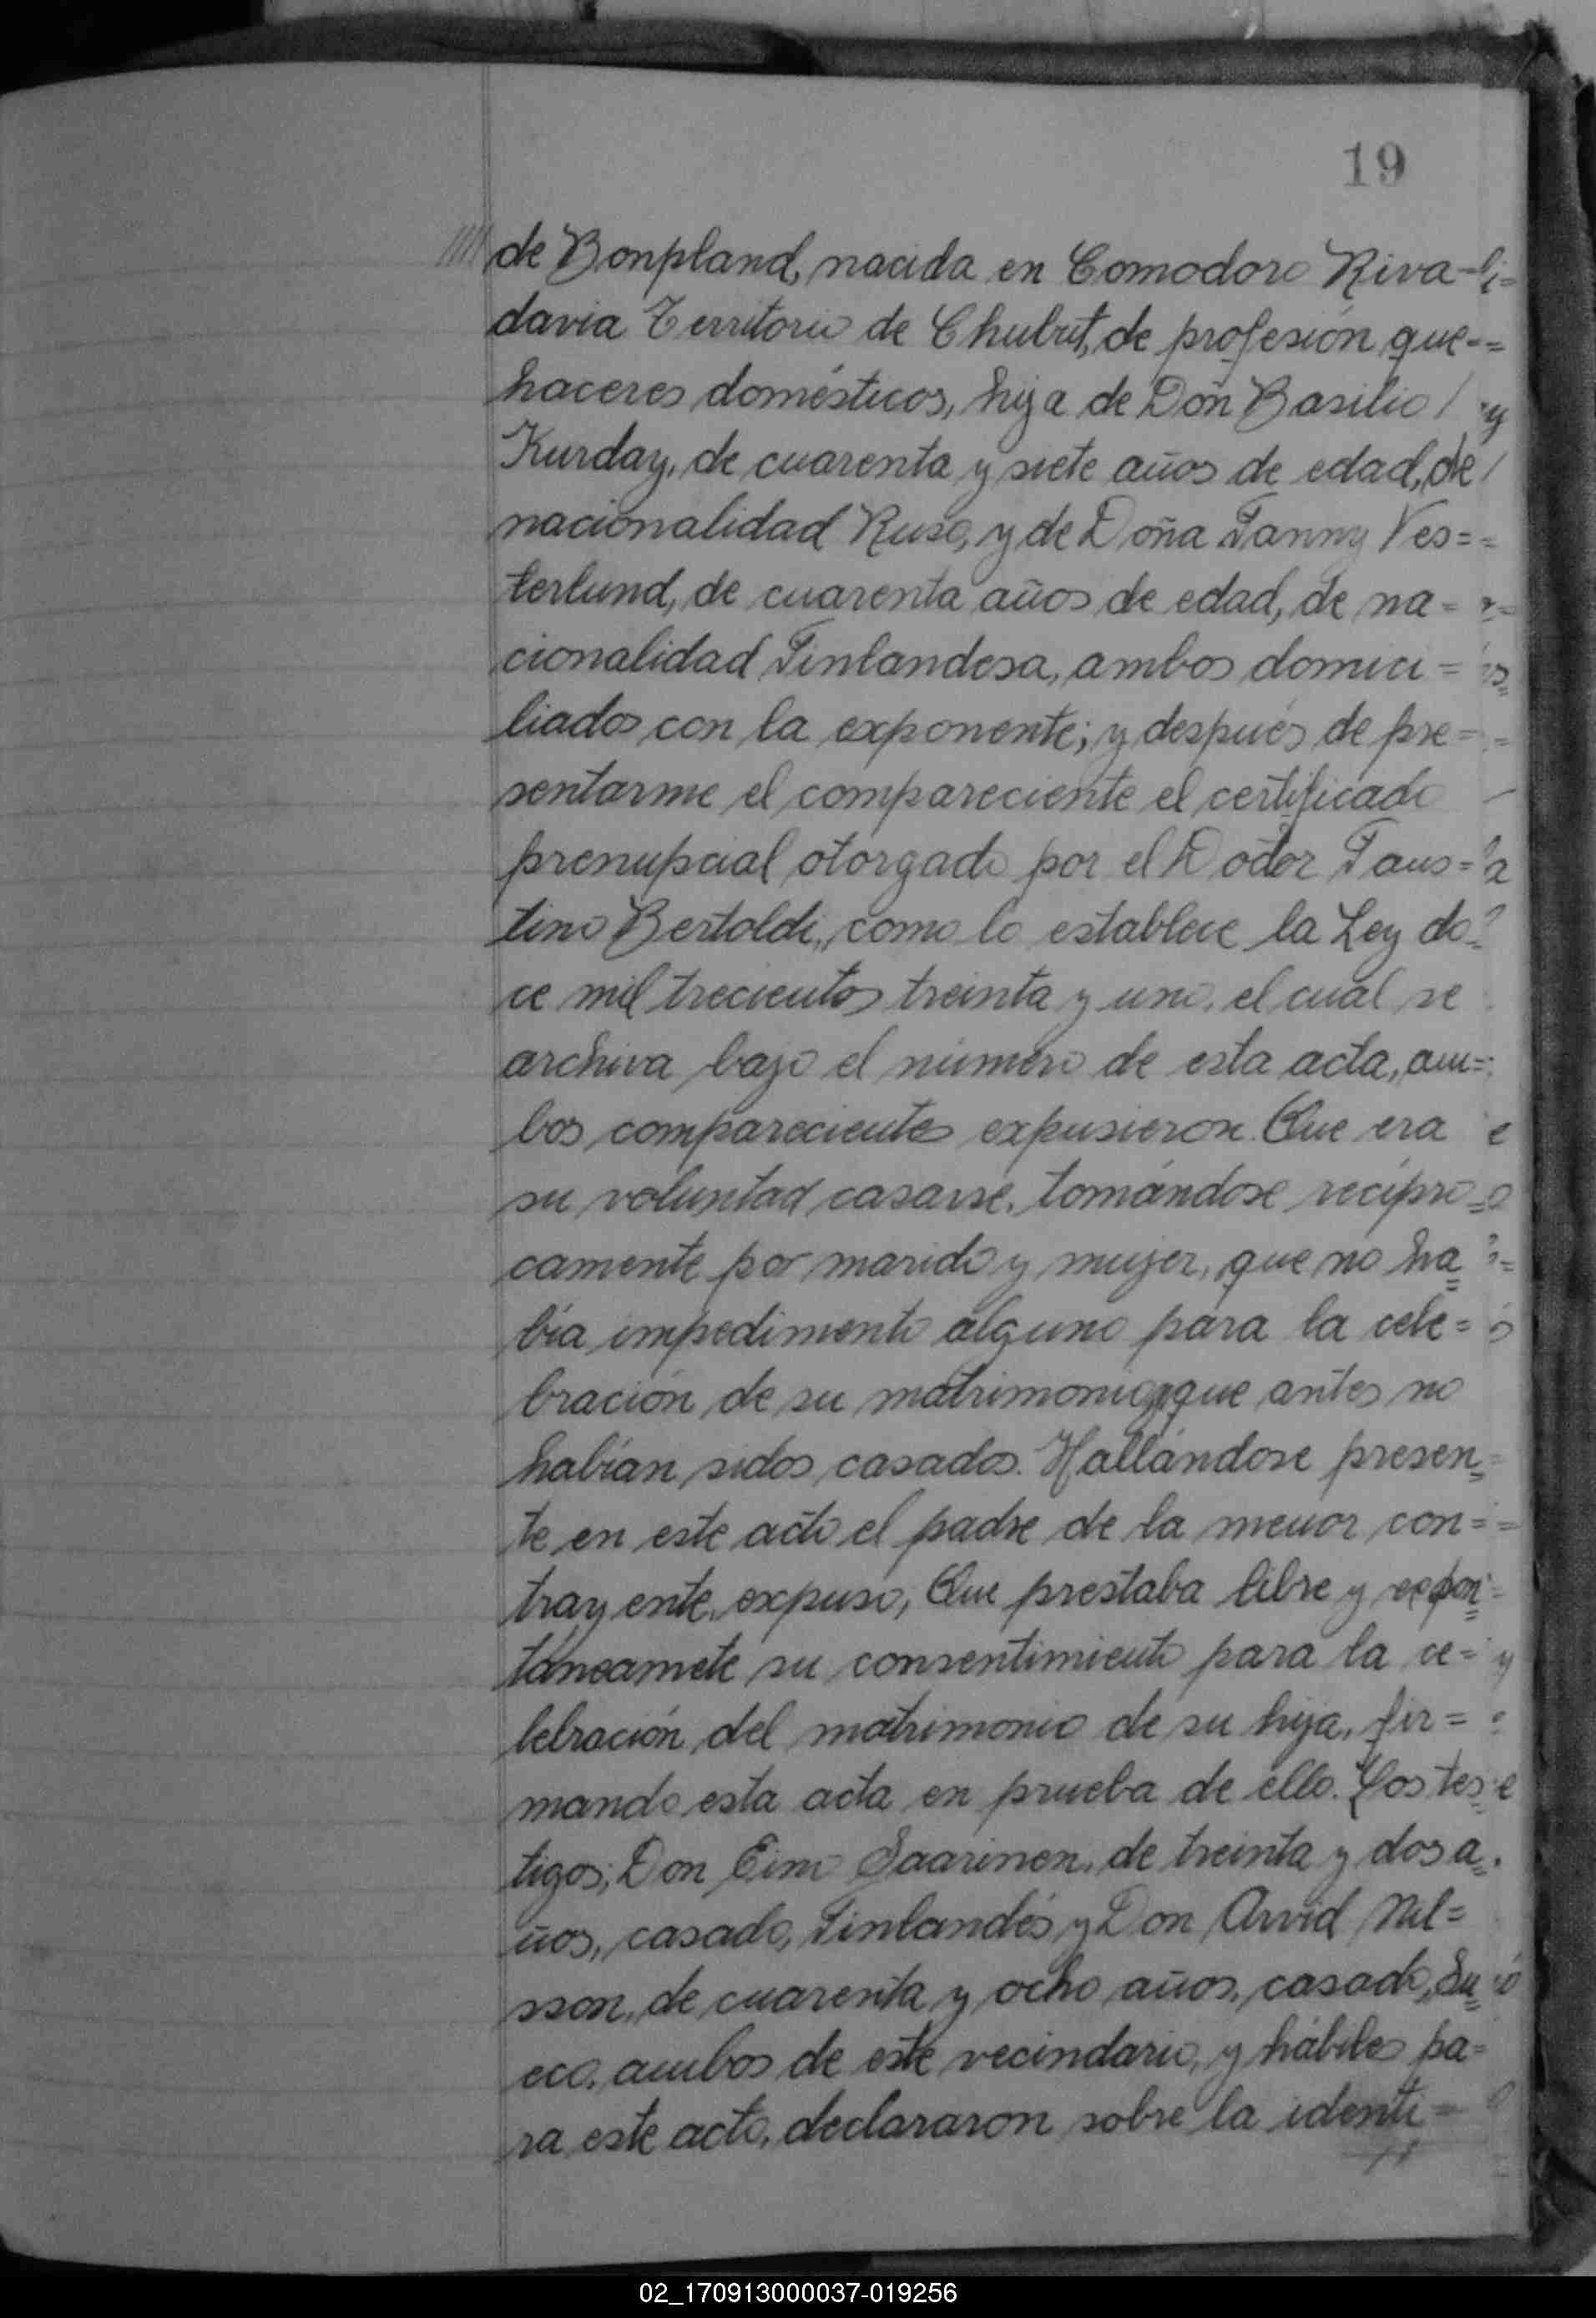 19
//// de Bonpland, nacida en Comodoro Riva-
davia Territorio de Chubut, de profesión que-
haceres domésticos, hija de Don Basilio /
Kurday, de cuarenta y siete años de edad, de /
nacionalidad Ruso, y de Doña Fanny Ves=
terlund, de cuarenta años de edad, de na=
cionalidad Finlandesa, ambos domici=
liados con la exponente; y después de pre=
sentarme el compareciente el certificado
prenupcial otorgado por el Doctor Faus=
tino Bertoldi, como lo establece la Ley do=
ce mil trecientos treinta y uno, el cual se
archiva bajo el número de esta acta, am=
bos comparecientes expusieron. Que era
su voluntad casarse, tomándose recípro=
camente por marido y mujer, que no ha=
bía impedimento alguno para la cele=
bración de su matrimonio, que antes no
habían sidos casados. Hallándose presen=
te en este acto el padre de la menor con=
trayente, expuso, Que prestaba libre y espon=
táneamete su consentimiento para la ce=
lebración del matrimonio de su hija, fir=
mando esta acta en prueba de ello. Los tes=
tigos; Don Eino Saarinen, de treinta y dos a=
ños, casado, Finlandés y Don Arvid Nil=
sson, de cuarenta y ocho años, casado, Su=
eco, ambos de este vecindario, y hábiles pa=
ra este acto, declararon sobre la identi=
02_170913000037-019256